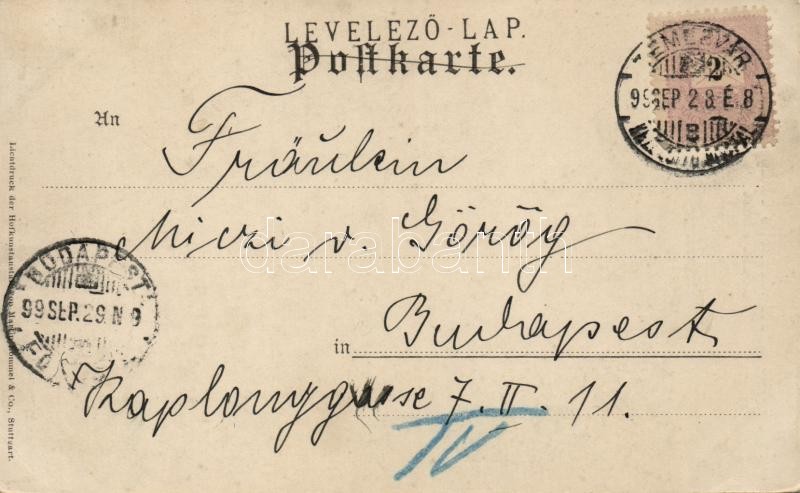 LEVELEZŐ-LAP.
Postkarte.
TEMESVÁR
2
99 SEP 28 É. 8
An
Fräulein
Miczi v. Görög
darabanth
BUDAPEST
99 SEP. 29. N 9
in Budapest
Kaplonygasse 7. II. 11.
IV
Lichtdruck der Hofkunstanstalt von Martin Rommel & Co., Stuttgart.